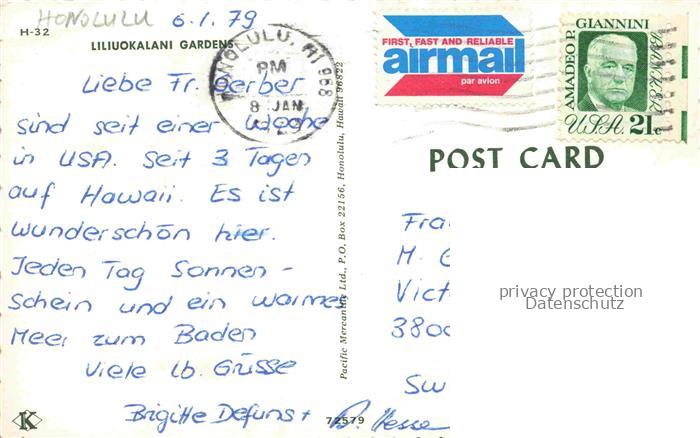 HONOLULU 6.1.79
H-32
LILIUOKALANI GARDENS
Liebe Fr. Gerber
sind seit einer Woche
in USA. Seit 3 Tagen
auf Hawaii. Es ist
wunderschön hier.
Jeden Tag Sonnen-
schein und ein warmes
Meer zum Baden
Viele lb. Grüsse
Brigitte Defuns +
K
72579
Pacific Mercantile Ltd., P.O. Box 22156, Honolulu, Hawaii 96822
HONOLULU, HI 968
PM
8 JAN
FIRST, FAST AND RELIABLE
airmail
par avion
AMADEO P. GIANNINI
U.S.A. 21c
POST CARD
Fra
M. G
Vict
3800
Sw
privacy protection
Datenschutz